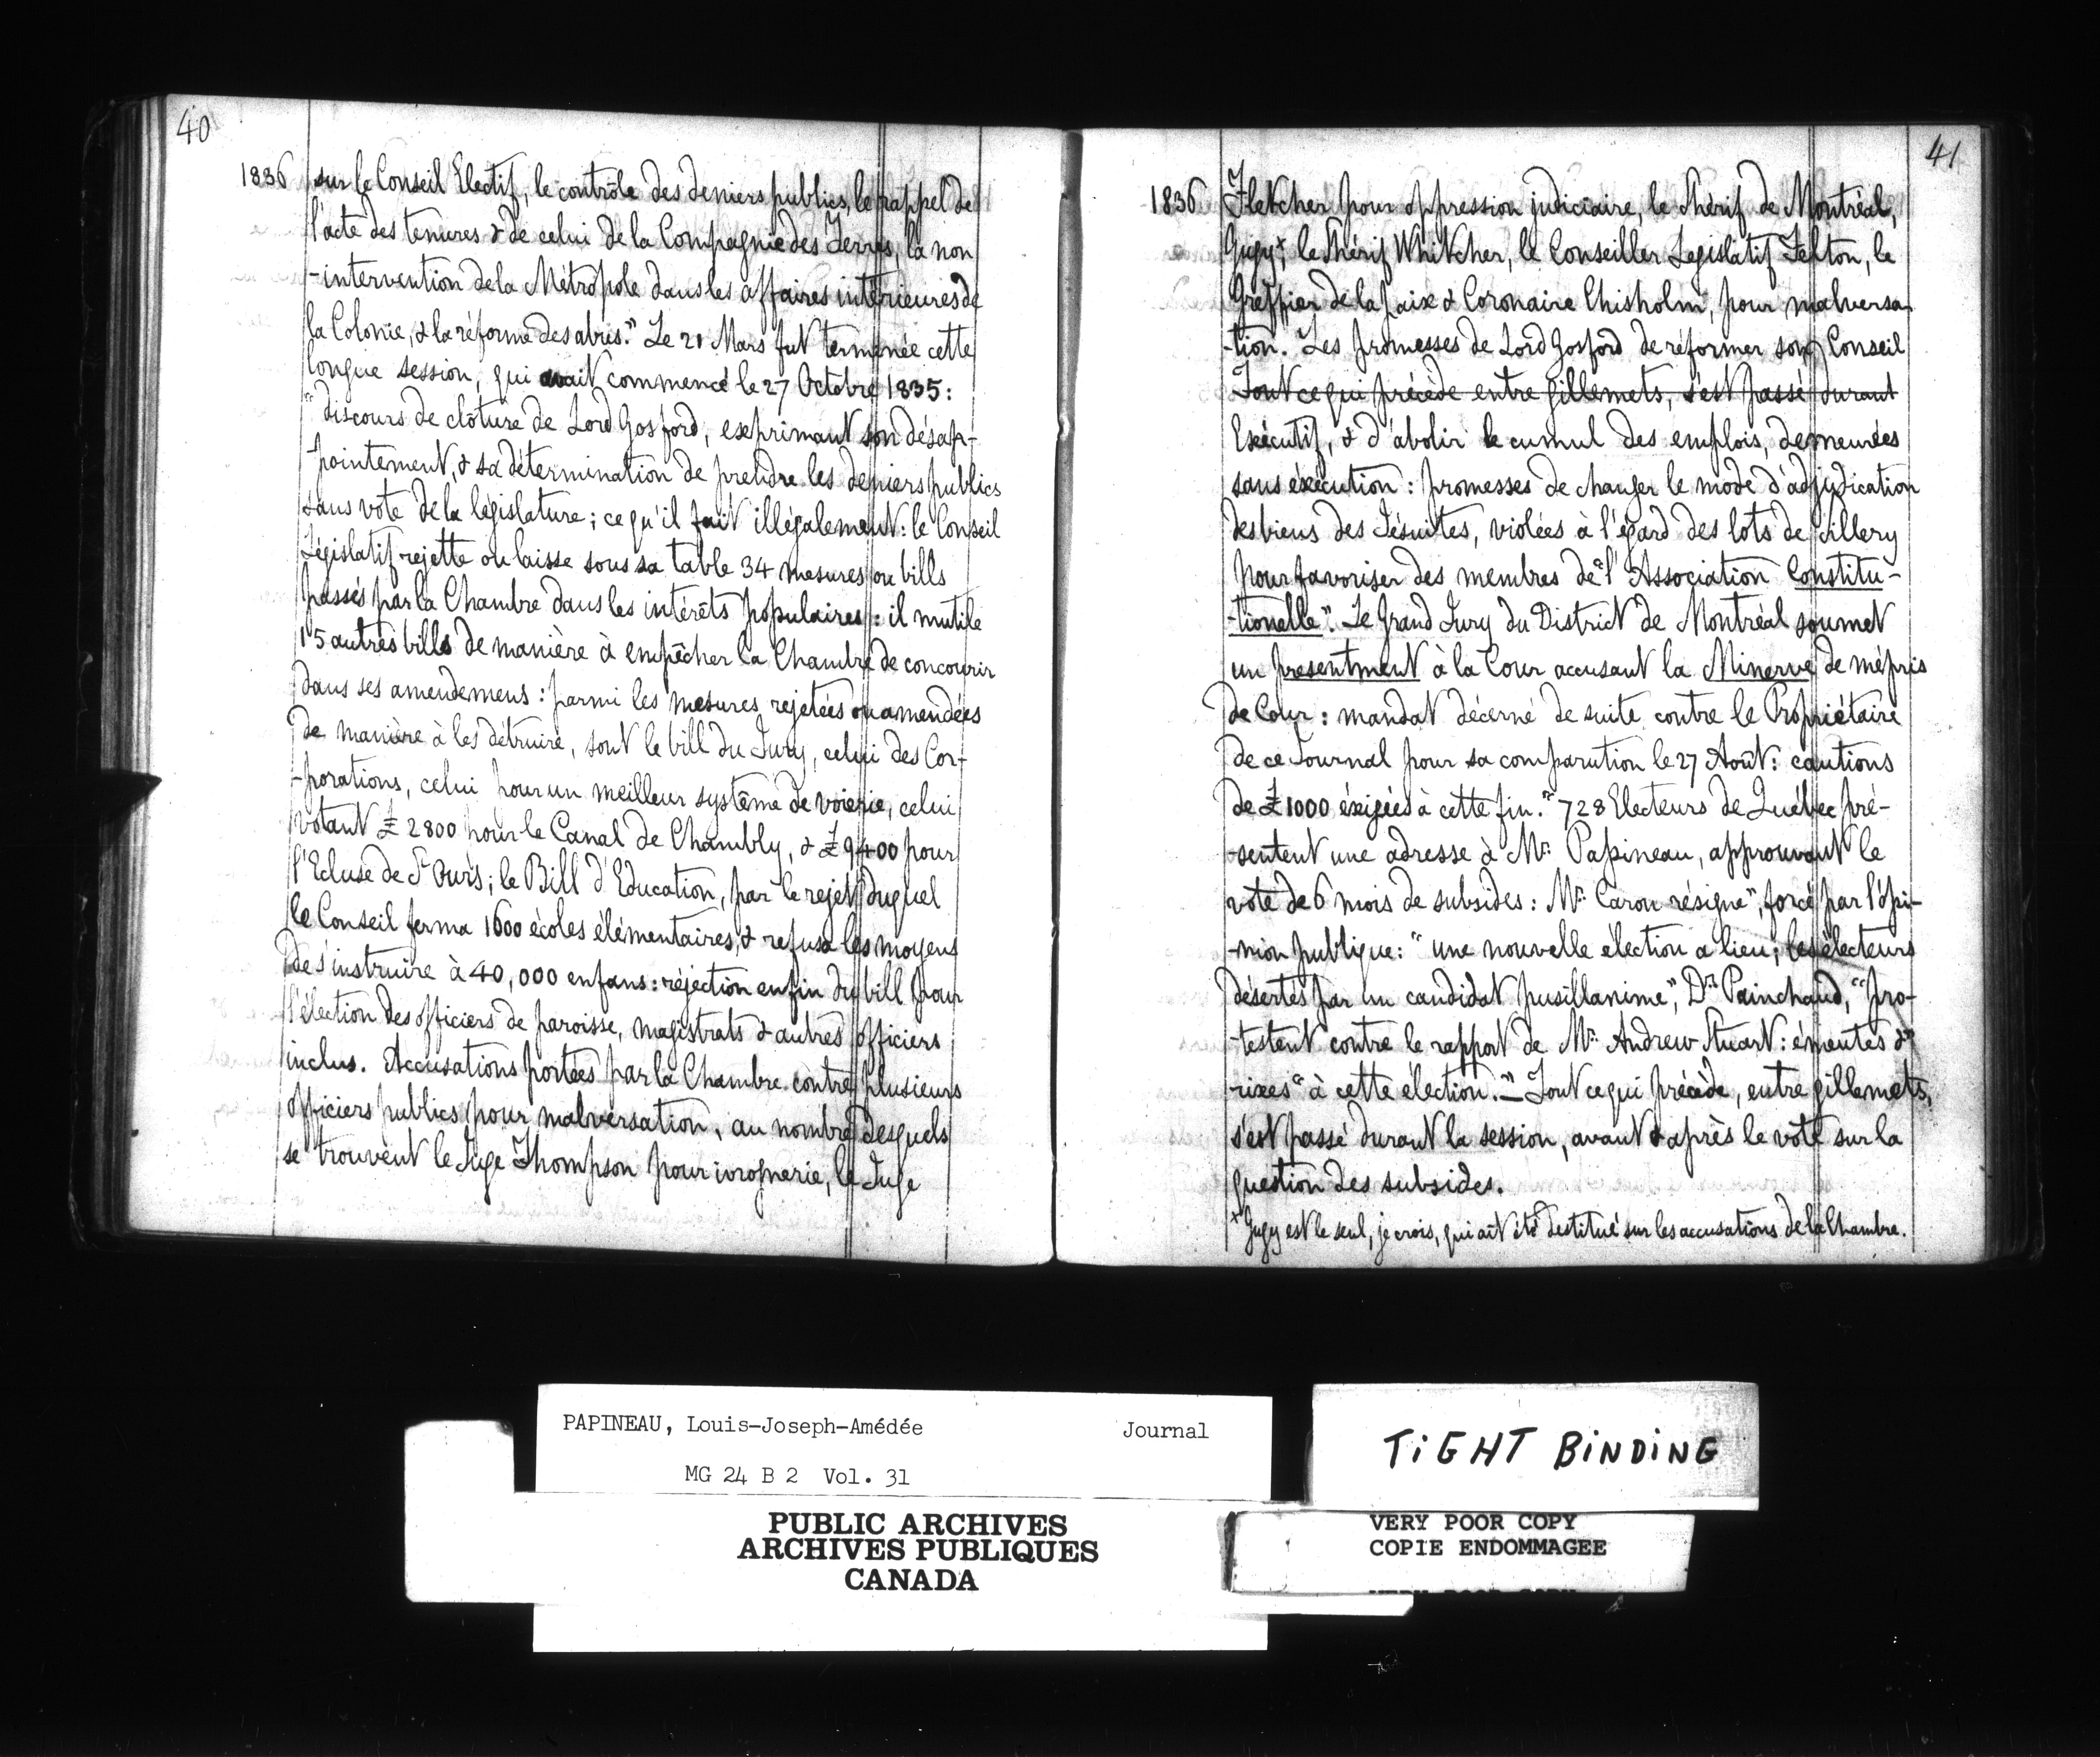 40
1836 sur le Conseil Electif, le contrôle des deniers publics, le rappel de
l'acte des tenures & de celui de la Compagnie des Terres, la non
-intervention de la Métropole dans les affaires intérieures de
la Colonie, & la réforme des abus." Le 21 Mars fut terminée cette
longue session, qui avait commencé le 27 Octobre 1835:
"discours de clôture de Lord Gosford, exprimant son désap-
-pointement, & sa détermination de prendre les deniers publics
sans vote de la législature; ce qu'il fait illégalement: le Conseil
Législatif rejette ou laisse sous sa table 34 mesures ou bills
passés par la Chambre dans les intérêts populaires: il mutile
15 autres bills de manière à empêcher la Chambre de concourir
dans ses amendemens: parmi les mesures rejetées ou amendées
de manière à les détruire, sont le bill du Jury, celui des Cor-
-porations, celui pour un meilleur système de voierie, celui
votant £2800 pour le Canal de Chambly, & £9400 pour
l'Ecluse de St Ours; le Bill d'Education, par le rejet duquel
le Conseil ferma 1600 écoles élémentaires, & refusa les moyens
de s'instruire à 40,000 enfans: réjection enfin du bill pour
l'élection des officiers de paroisse, magistrats & autres officiers
inclus. Accusations portées par la Chambre contre plusieurs
officiers publics pour malversation, au nombre desquels
se trouvent le Juge Thompson pour ivrognerie, le Juge
41
1836 Fletcher pour oppression judiciaire, le Shérif de Montréal,
Gugy+, le Shérif Whitcher, le Conseiller Legislatif Felton, le
Greffier de la paix & Coronaire Chisholm, pour malversa-
-tion. Les promesses de Lord Gosford de réformer son Conseil
Tout ce qui précède entre gillemets, s'est passé durant
Exécutif, & d'abolir le cumul des emplois, demeurées
sans éxécution: promesses de changer le mode d'adjudication
des biens des Jésuites, violées à l'égard des lots de Sillery
pour favoriser des membres de "l'Association Constitu-
-tionelle". Le Grand Jury du District de Montréal soumet
un presentment à la Cour accusant la Minerve de mépris
de Cour: mandat décerné de suite contre le Propriétaire
de ce Journal pour sa comparution le 27 Août: cautions
de £1000 éxigées à cette fin." "728 Electeurs de Québec pré-
-sentent une adresse à Mr. Papineau, approuvant le
vote de 6 mois de subsides: Mr. Caron résigne", forcé par l'opi-
-nion publique: "une nouvelle élection a lieu; les électeurs
désertés par un candidat pusillanime", Dr. Painchaud, "pro-
-testent contre le rapport de Mr. Andrew Stuart: émeutes &"
rixes "à cette élection." — Tout ce qui précède, entre gillemets,
s'est passé durant la session, avant & après le vote sur la
question des subsides.
+ Gugy est le seul, je crois, qui ait été destitué sur les accusations de la Chambre.
PAPINEAU, Louis-Joseph-Amédée Journal
MG 24 B 2 Vol. 31
PUBLIC ARCHIVES
ARCHIVES PUBLIQUES
CANADA
TiGHT BiNDiNG
VERY POOR COPY
COPIE ENDOMMAGEE
VERY POOR COPY